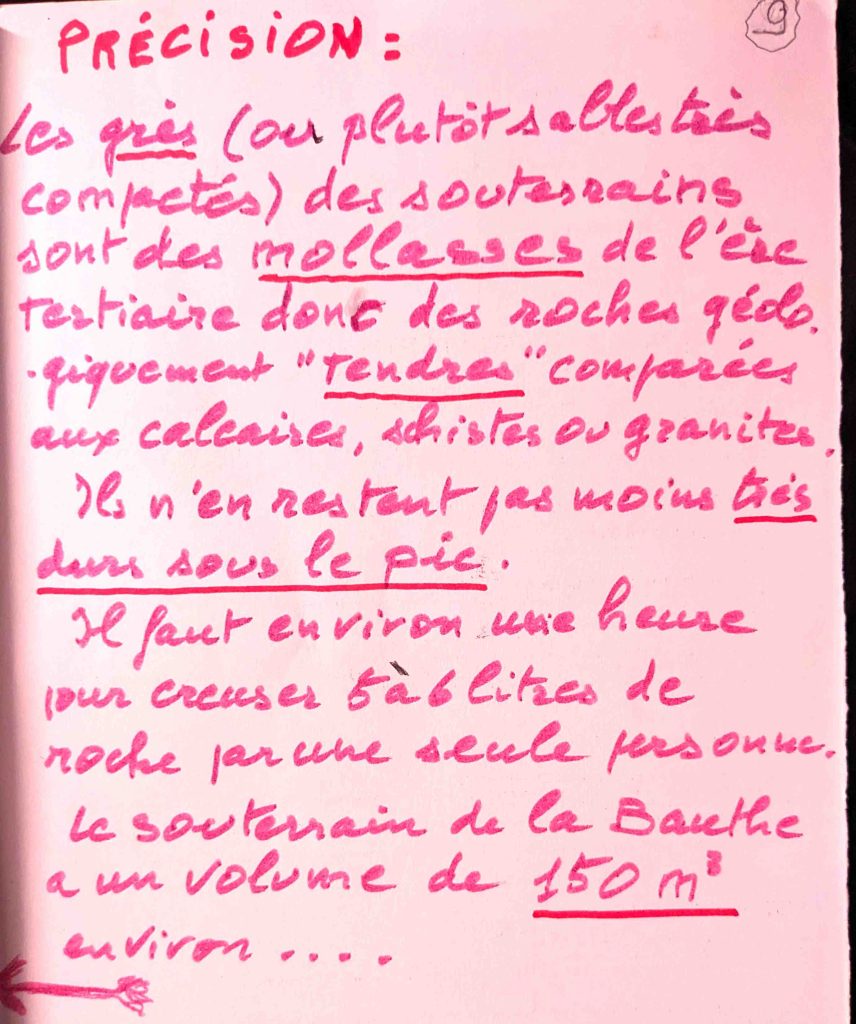 9
PRÉCISION :
Les grès (ou plutôt sables très
compactés) des souterrains
sont des mollasses de l'ère
tertiaire donc des roches géolo.
-giquement "tendres" comparées
aux calcaires, schistes ou granites.
Ils n'en restent pas moins très
durs sous le pic.
Il faut environ une heure
pour creuser 5 à 6 litres de
roche par une seule personne.
Le souterrain de la Bauthe
a un volume de 150 m³
environ ....